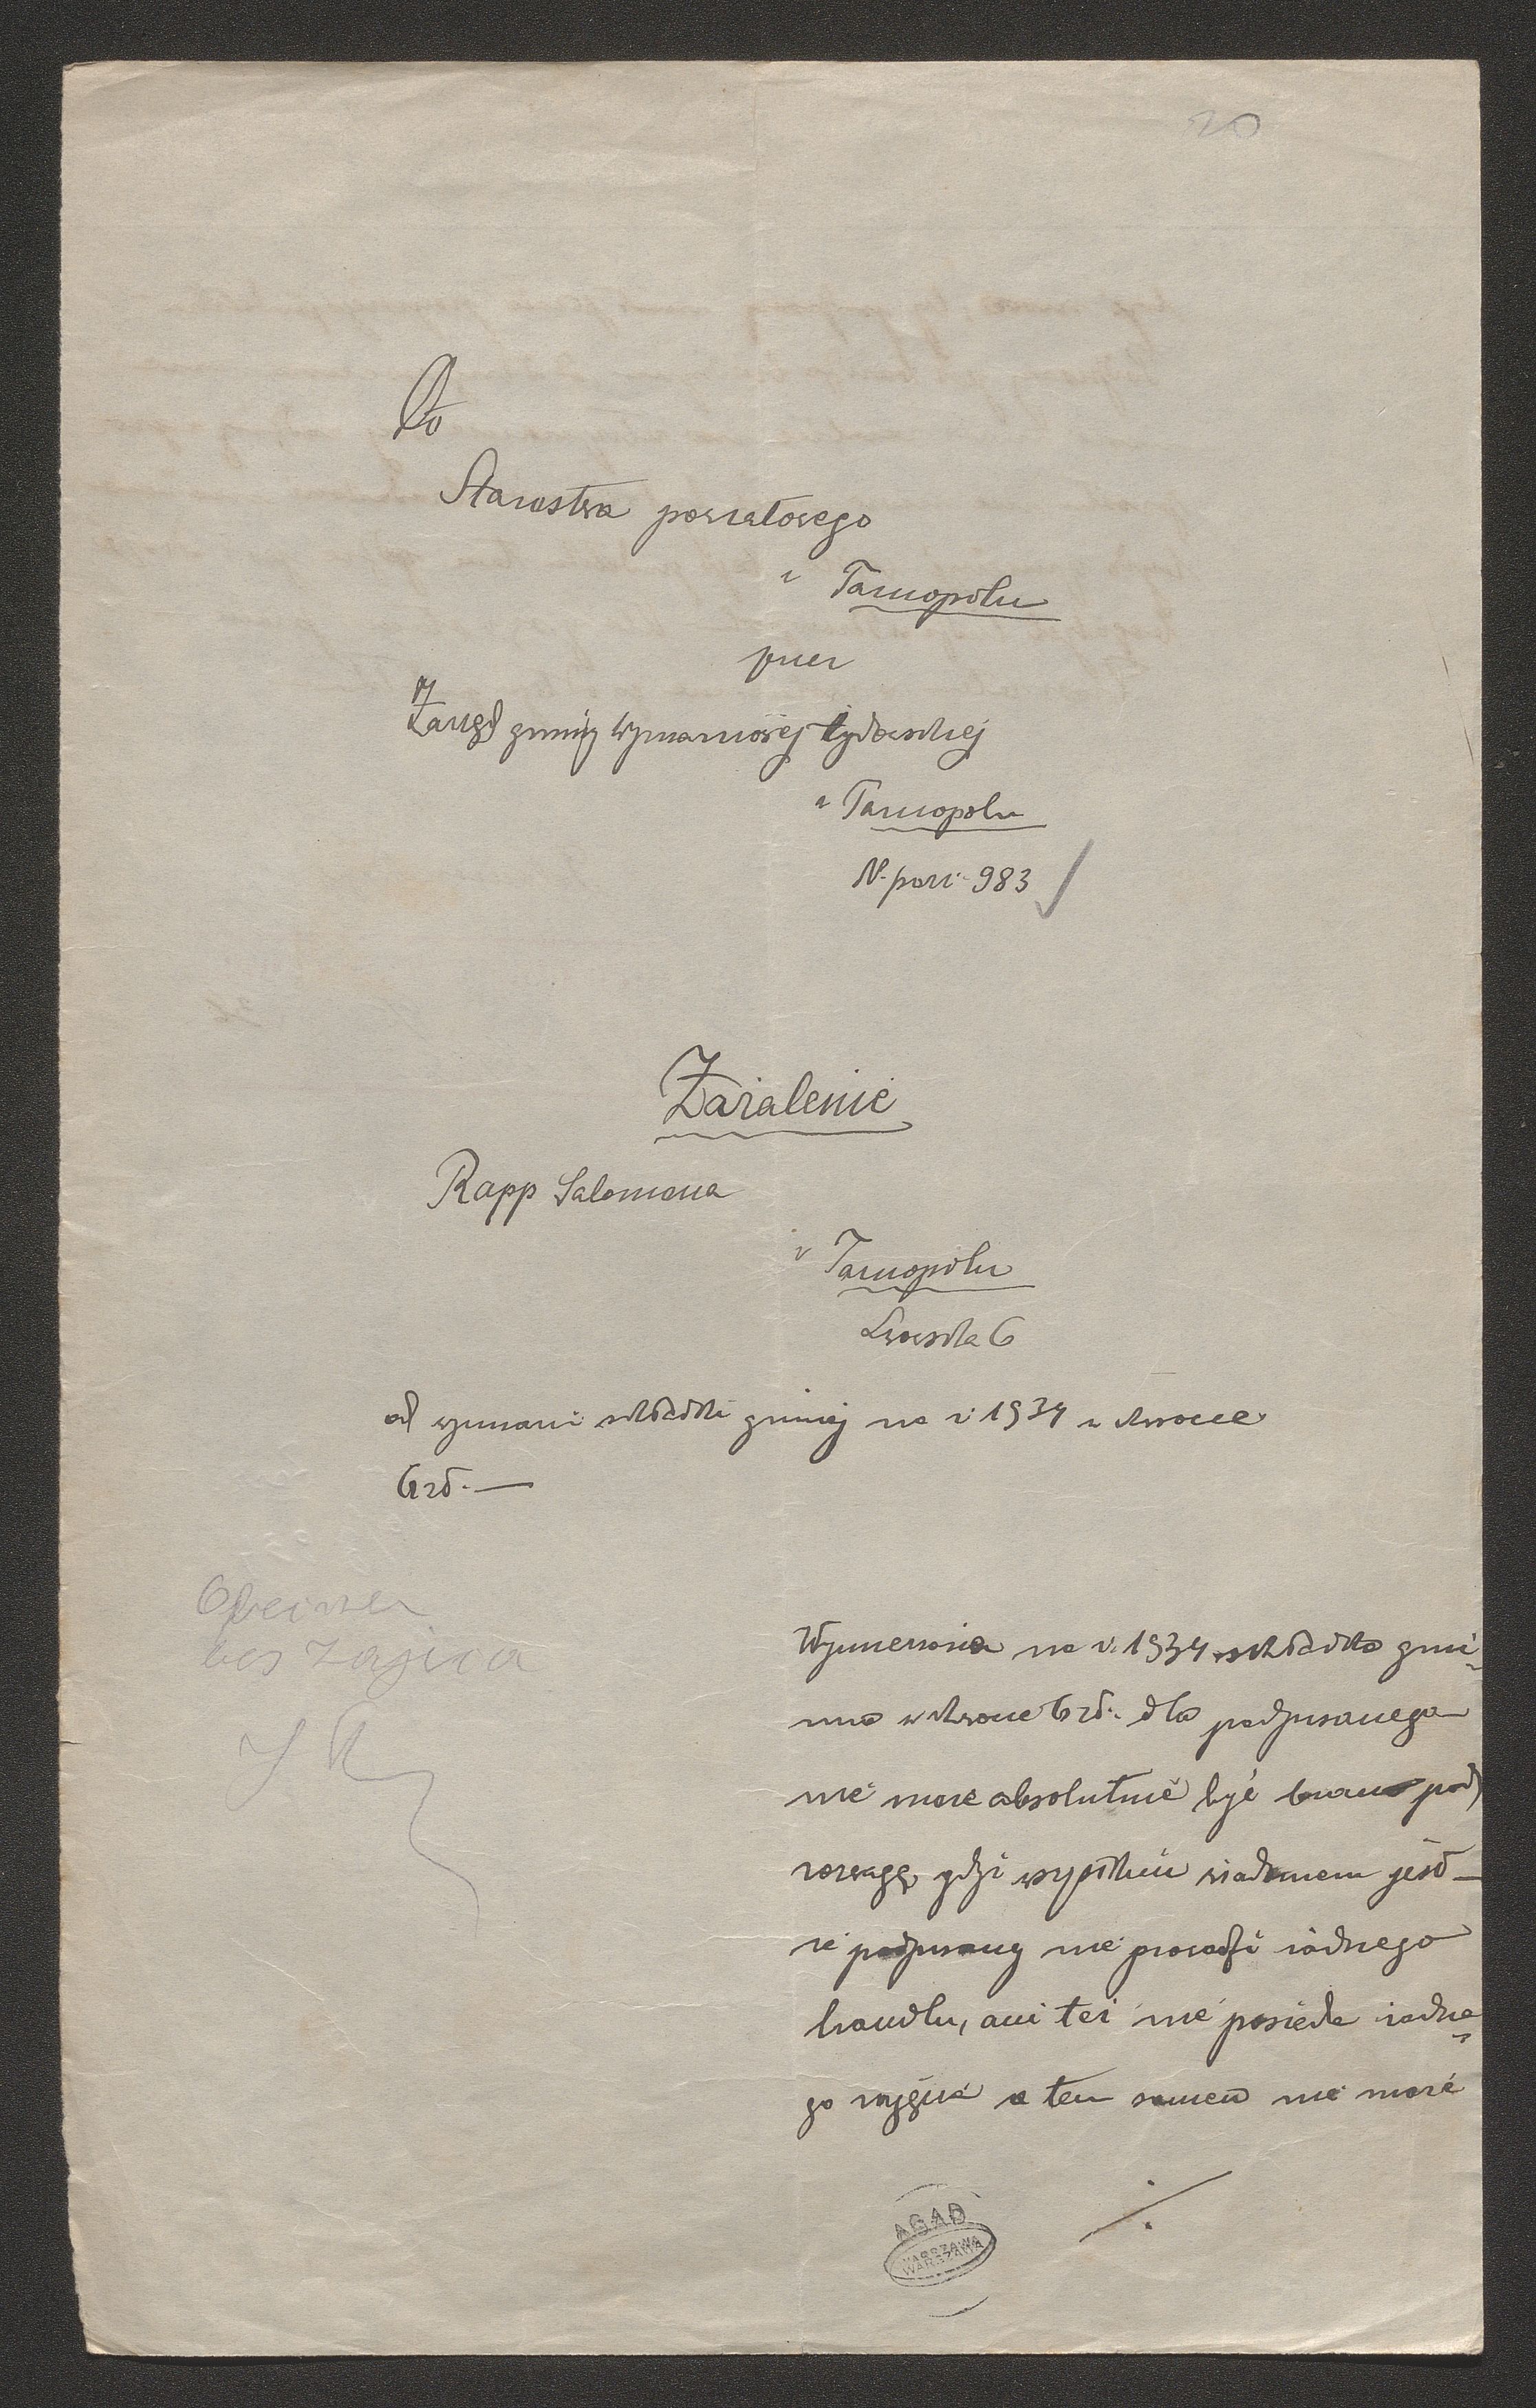 20
Do
Starostwa powiatowego
w Tarnopolu
przez
Zarząd gminy wyznaniowej żydowskiej
w Tarnopolu
N. poz: 983
Zażalenie
Rapp Salomona
w Tarnopolu
Lwowska 6
od wymiaru składki gminnej na r. 1934 w kwocie
6 zł. —
bez zajęcia
Wymierzona na r. 1934 składka gmi-
nna w kwocie 6 zł. dla podpisanego
nie może absolutnie być brana pod
rozwagę, gdzi wszystkim wiadomem jest –
że podpisany nie prowadzi żadnego
handlu, ani też nie posiada żadne-
go zajęcia a tem samem nie może
./.
AGAD
WARSZAWA
WARSZAWA